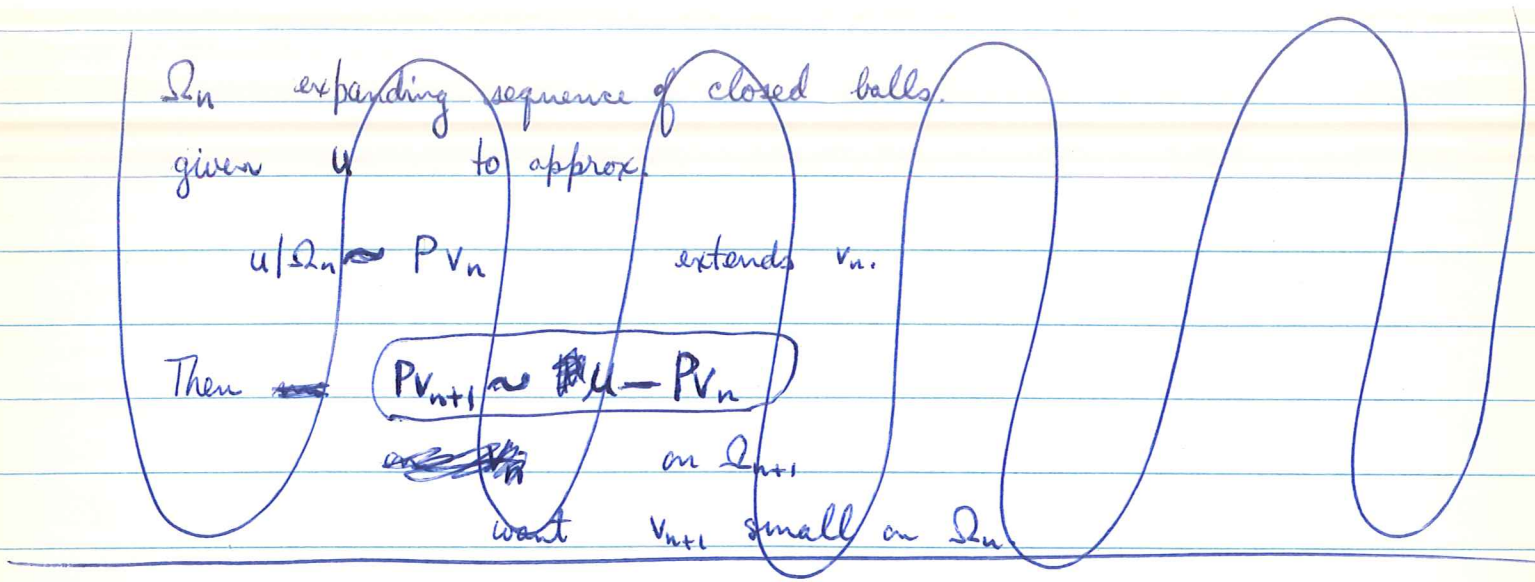 Ωn expanding sequence of closed balls.
given u to approx.
u/Ωn ~ Pvn extends vn.
Then Pvn+1 ~ u − Pvn
on Ωn+1
want vn+1 small on Ωn.